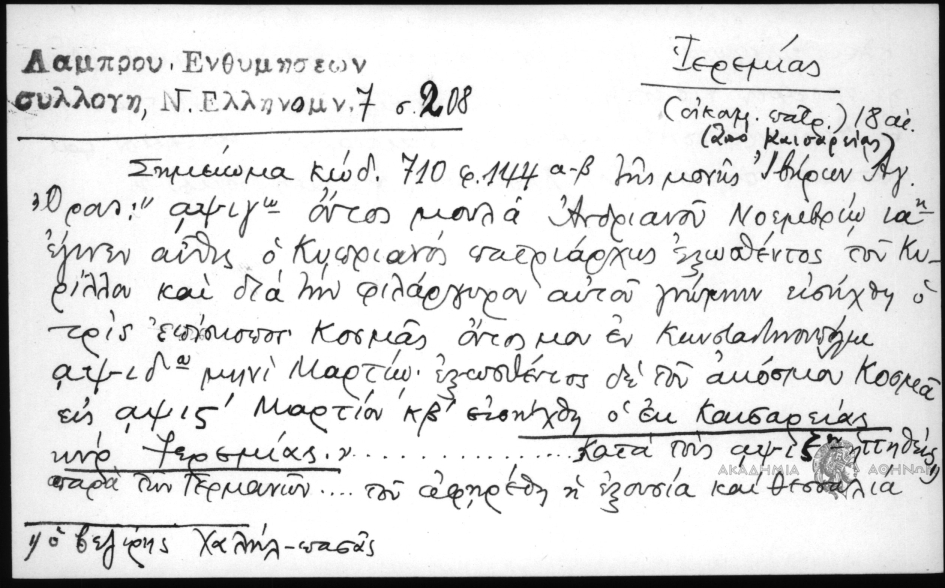 Λαμπρου. Ενθυμησεων
συλλογη, Ν. Ελληνομν. 7 σ. 208
Ἱερεμίας
(οἰκουμ. πατρ.) 18 αἰ.
(ἀπό Καισαρείας)
Σημείωμα κώδ. 710 φ. 144 α-β τῆς μονῆς Ἰβήρων Ἁγ.
Ὄρους: " αψ-ιγω ὄντος μουλᾶ Ἀνδριανοῦ Νοεμβρίω ιαη
ἐγινεν αὖθις ὁ Κυπριανός πατριάρχης ἐξωσθέντος τοῦ Κυ-
ρίλλου καὶ διά τήν φιλάργυρον αὐτοῦ γνώμην εἰσήχθη ὁ
τρίς ἐπίσκοπος Κοσμᾶς ὄντος μου ἐν Κωνσταντινουπόλει
αψ-ιδω μηνὶ Μαρτίω. ἐξωσθέντος δέ τοῦ ἀκόσμου Κοσμᾶ
εἰς αψις' Μαρτίου κβ' εἰσήχθη ὁ ἐκ Καισαρείας
κύρ Ἱερεμίας." .................. κατά τούς αψ-ιζ ἡττηθείς
ΑΚΑΔΗΜΙΑ ΑΘΗΝΩΝ
παρά τῶν Γερμανῶν .... τοῦ ἀφῃρέθη ἡ ἐξουσία καὶ
1) ὁ βεζίρης Χαλήλ-πασᾶς